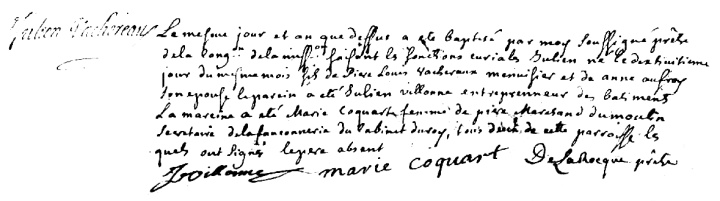 Julien Vachereau
Le mesme jour et an que dessus a ete baptisé par moy soussigné prêtre
de la Cong.on de la mission faisant les fonctions curiales Julien né le dixhuitieme
jour du mesme mois fils de Piere Louis Vacheraux menuisier et de anne aufroy
son epouse le parein a eté Julien Villonne entreprenneur des batiments
La mareine a eté Marie Coquart femme de piere Marchand dumoulin
Secretaire de la fauconnerie du Cabinet du roy, tous de cette parroisse les
quels ont signé le pere absent
JVillonne marie coquart De Larocque prêtre